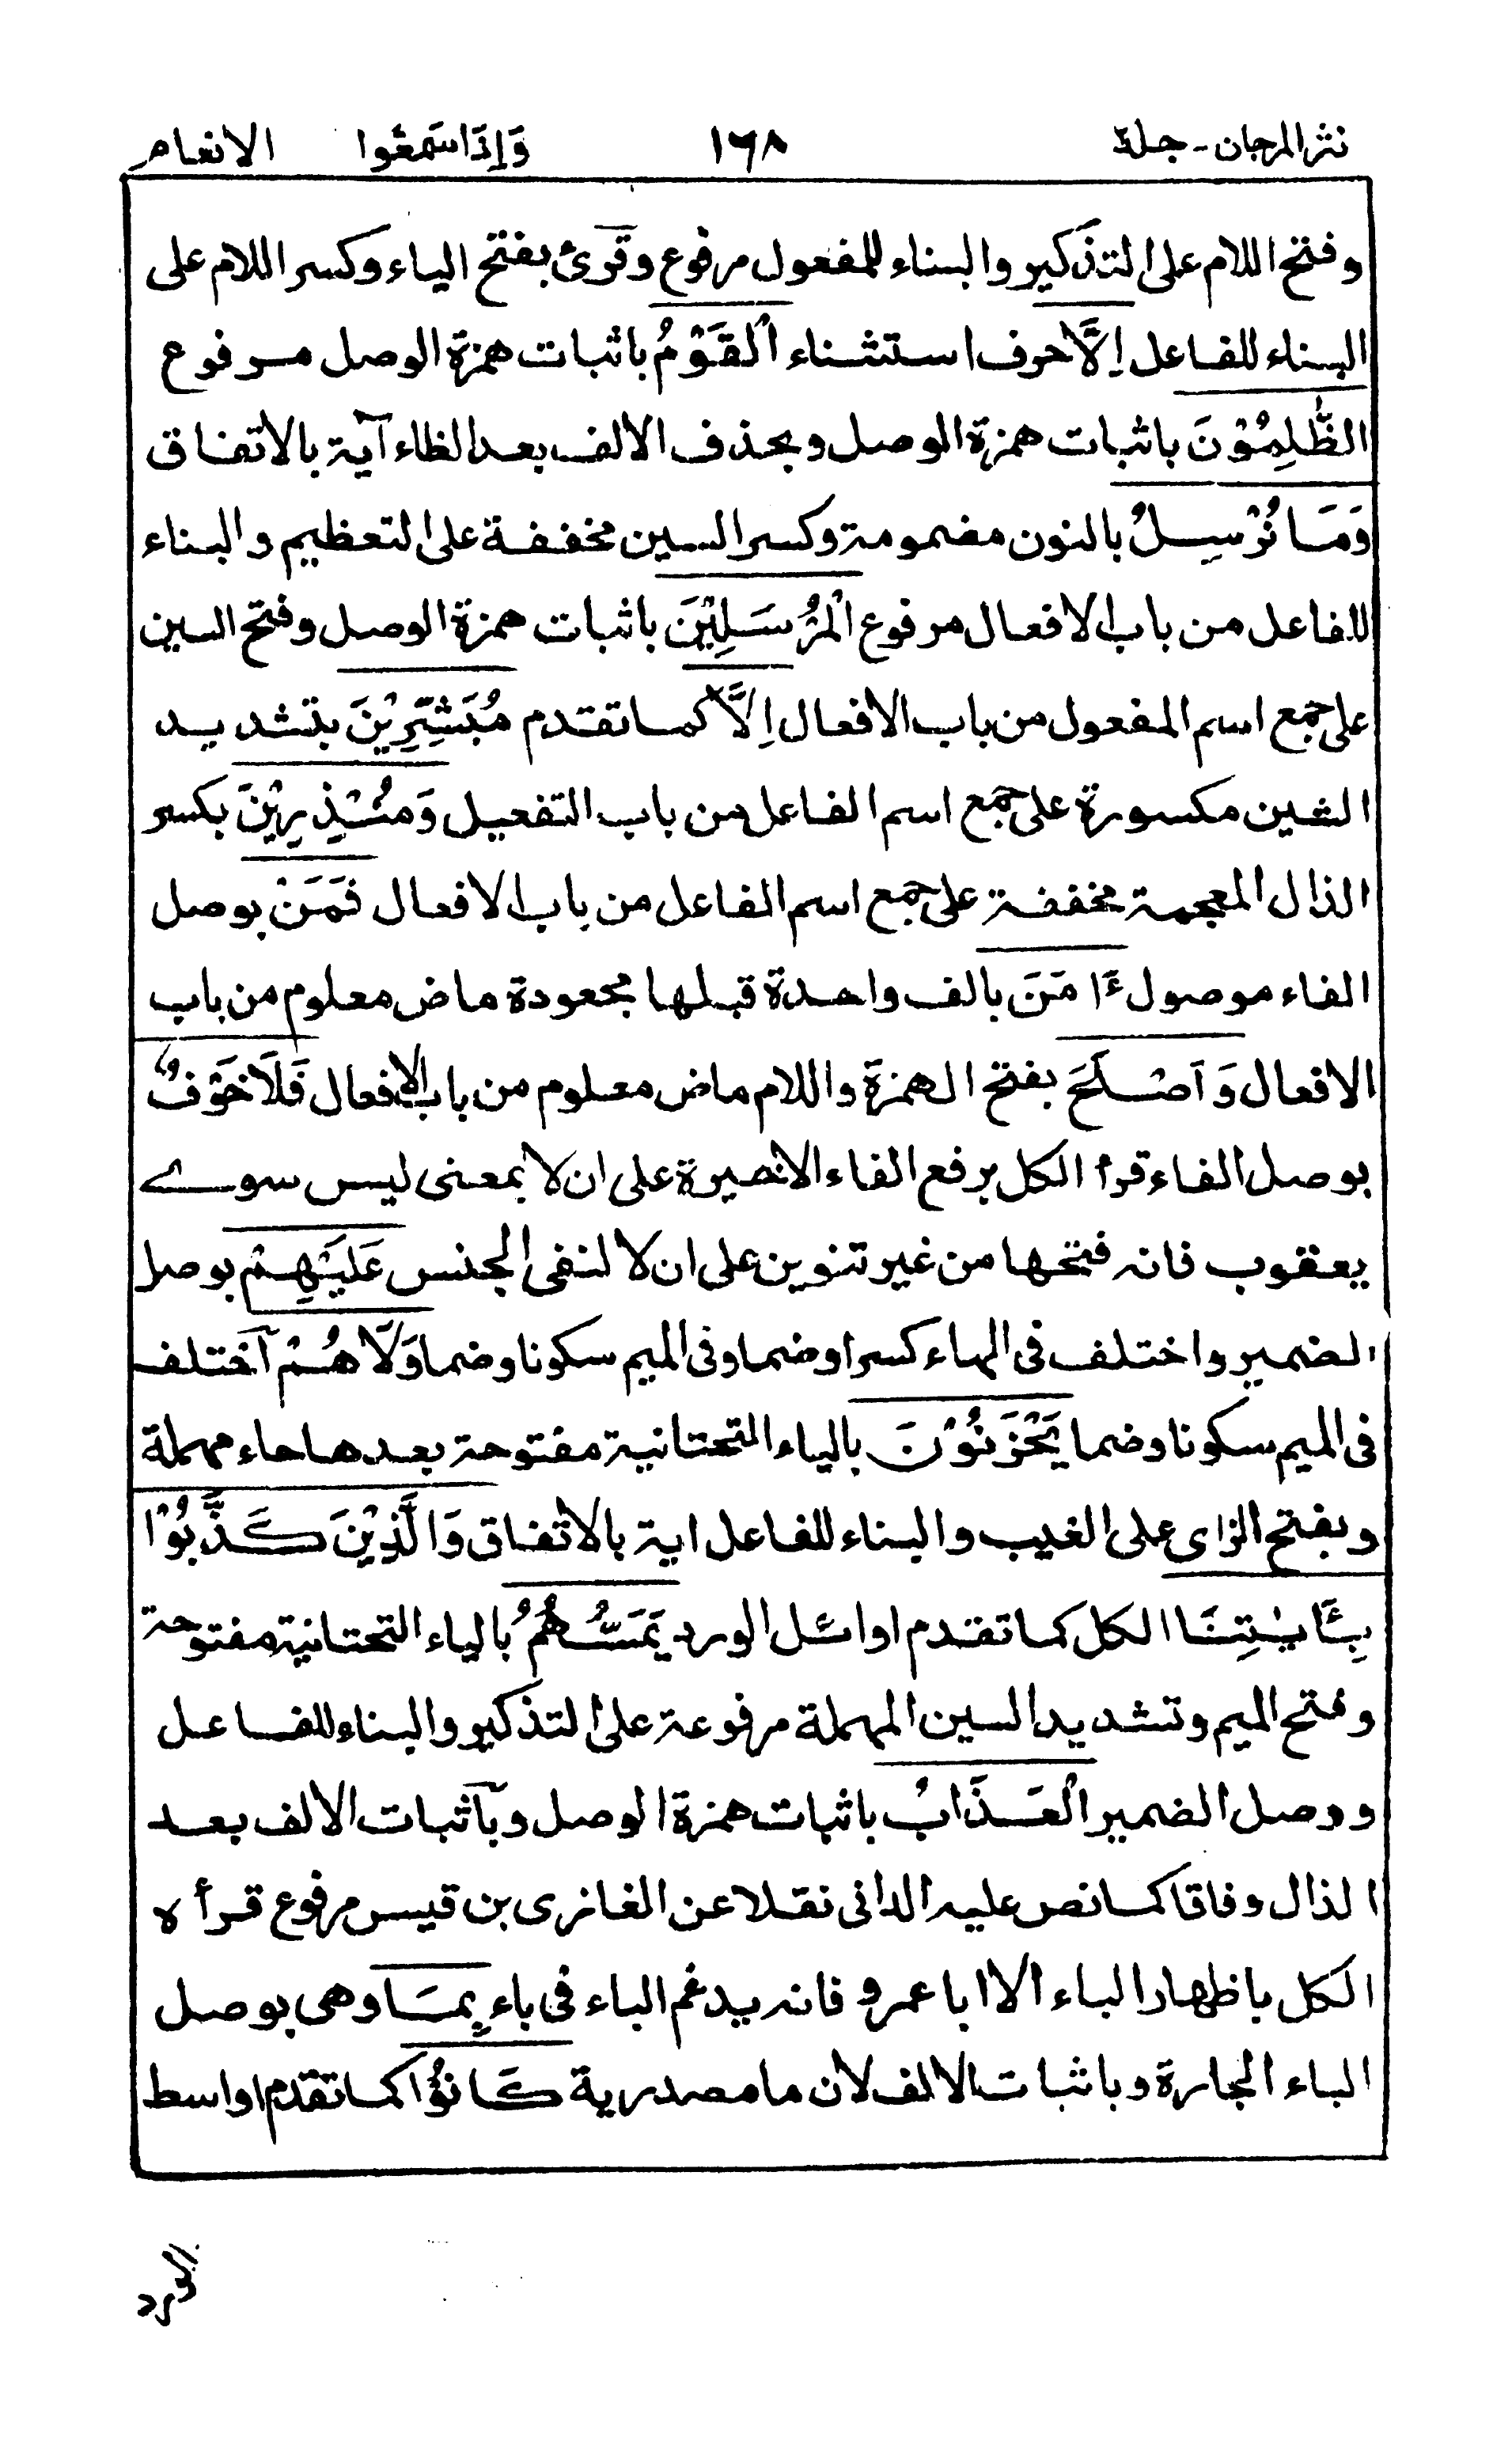 نثر المرجان - جلد ٢ ١٦٨ وَإِذَا سَمِعُوا الانعام
وفتح اللام على التذكير والبناء للمفعول مرفوع وقرئ بفتح الياء وكسر اللام على
البناء للفاعل اِلَّا حرف استثناء الْقَوْمُ باثبات همزة الوصل مرفوع
الظّٰلِمُوْنَ باثبات همزة الوصل وبحذف الالف بعد الظاء آية بالاتفاق
وَمَا نُرْسِلُ بالنون مضمومة وكسر السين مخففة على التعظيم والبناء
للفاعل من باب الافعال مرفوع الْمُرْسَلِيْنَ باثبات همزة الوصل وفتح السين
على جمع اسم المفعول من باب الافعال اِلَّا كما تقدم مُبَشِّرِيْنَ بتشديد
الشين مكسورة على جمع اسم الفاعل من باب التفعيل وَمُنْذِرِيْنَ بكسر
الذال المعجمة مخففة على جمع اسم الفاعل من باب الافعال فَمَنْ بوصل
الفاء موصول ءَامَنَ بالف واحدة قبلها مجعودة ماض معلوم من باب
الافعال وَاَصْلَحَ بفتح الهمزة واللام ماض معلوم من باب الافعال فَلَا خَوْفٌ
بوصل الفاء قرأ الكل برفع الفاء الاخيرة على ان لا بمعنى ليس سوے
يعقوب فانه فتحها من غير تنوين على ان لا لنفى الجنس عَلَيْهِمْ بوصل
الضمير واختلف فى الهاء كسرا وضما وفى الميم سكونا وضما وَلَا هُمْ اختلف
فى الميم سكونا وضما يَحْزَنُوْنَ بالياء التحتانية مفتوحة بعدها حاء مهملة
وبفتح الزاى على الغيب والبناء للفاعل اية بالاتفاق وَالَّذِيْنَ كَذَّبُوْا
بِـَٔايٰتِنَا الكل كما تقدم اوائل الورد يَمَسُّهُمُ بالياء التحتانية مفتوحة
وفتح الميم وتشديد السين المهملة مرفوعة على التذكير والبناء للفاعل
ووصل الضمير الْعَذَابُ باثبات همزة الوصل وباثبات الالف بعد
الذال وفاقا كما نص عليه الدانى نقلا عن الغازى بن قيس مرفوع قرأه
الكل باظهار الباء الا ابا عمرو فانه يدغم الباء فى باء بِمَا وهى بوصل
الباء الجارة وباثبات الالف لان ما مصدرية كَانُوْا كما تقدم اواسط
الورد